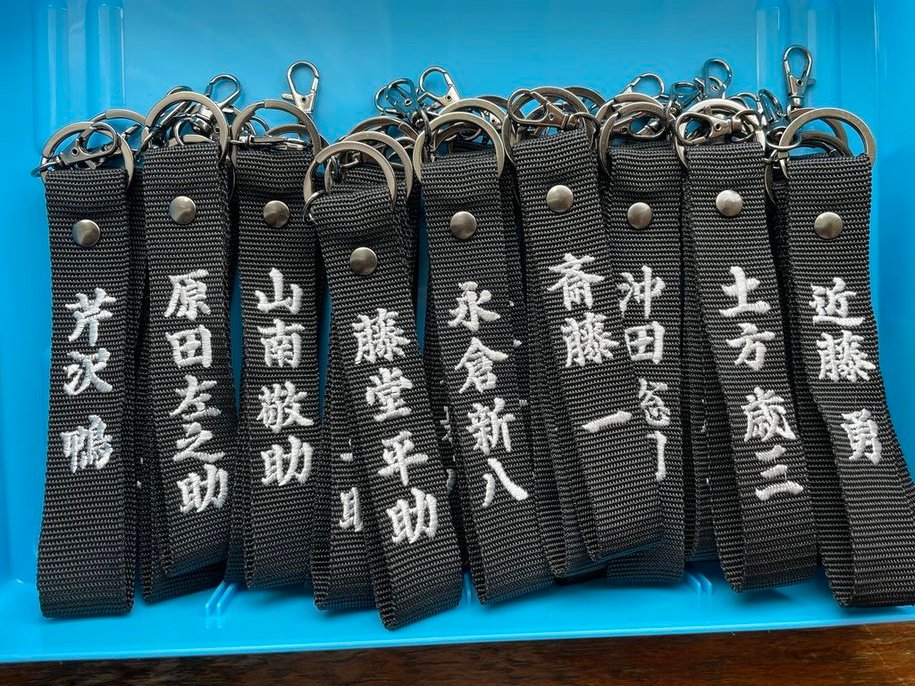 芹沢 鴨
原田左之助
山南敬助
藤堂平助
永倉新八
斎藤 一
沖田
土方歳三
近藤 勇